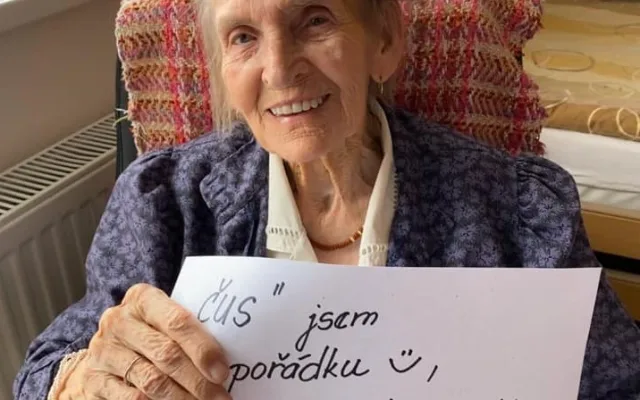 čus" jsem
pořádku ,